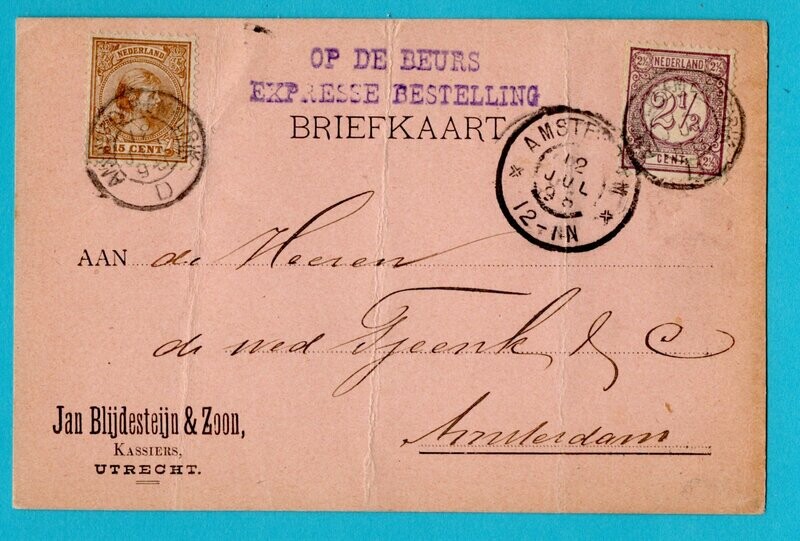 NEDERLAND
15 CENT
OP DE BEURS
EXPRESSE BESTELLING
BRIEFKAART
2½ NEDERLAND 2½
2½
2½ CENT 2½
AMSTERDAM
12
JUL
12-1N
AAN de Heeren
de wed Tjeenk & C
Amsterdam
Jan Blijdesteijn & Zoon,
KASSIERS,
UTRECHT.